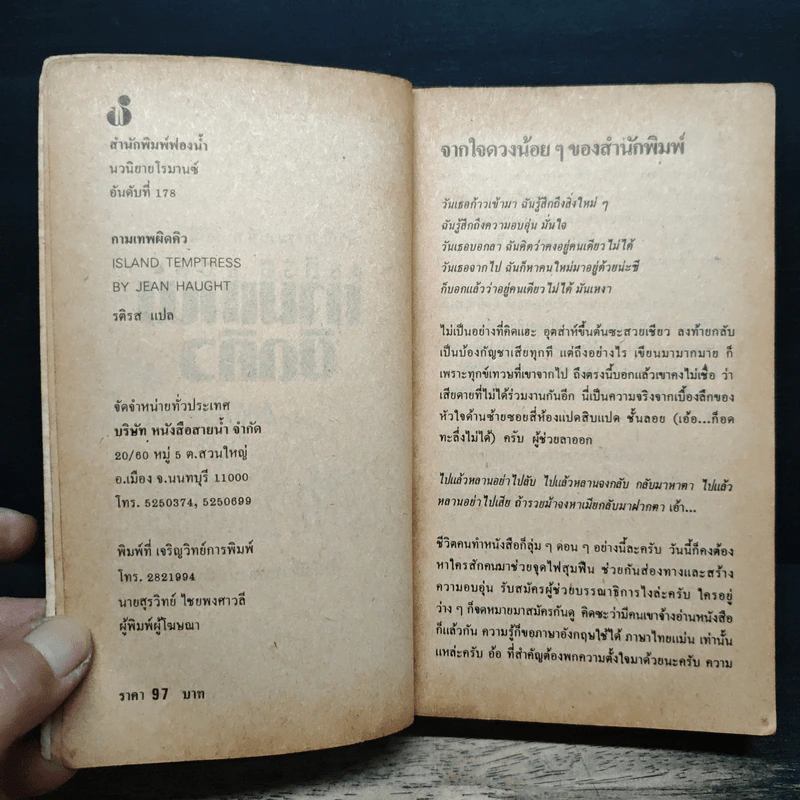 สำนักพิมพ์ฟองน้ำ
นวนิยายโรมานซ์
อันดับที่ 178
กามเทพผิดคิว
ISLAND TEMPTRESS
BY JEAN HAUGHT
รติรส แปล
จัดจำหน่ายทั่วประเทศ
บริษัท หนังสือสายน้ำ จำกัด
20/60 หมู่ 5 ต.สวนใหญ่
อ.เมือง จ.นนทบุรี 11000
โทร. 5250374, 5250699
พิมพ์ที่ เจริญวิทย์การพิมพ์
โทร. 2821994
นายสุรวิทย์ ไชยพงศาวลี
ผู้พิมพ์ผู้โฆษณา
ราคา 97 บาท
จากใจดวงน้อย ๆ ของสำนักพิมพ์
วันเธอก้าวเข้ามา ฉันรู้สึกถึงสิ่งใหม่ ๆ
ฉันรู้สึกถึงความอบอุ่น มั่นใจ
วันเธอบอกลา ฉันคิดว่าคงอยู่คนเดียวไม่ได้
วันเธอจากไป ฉันก็หาคนใหม่มาอยู่ด้วยน่ะซี
ก็บอกแล้วว่าอยู่คนเดียวไม่ได้ มันเหงา
ไม่เป็นอย่างที่คิดแฮะ อุตส่าห์ขึ้นต้นซะสวยเชียว ลงท้ายกลับ
เป็นบ้องกัญชาเสียทุกที แต่ถึงอย่างไร เขียนมามากมาย ก็
เพราะทุกข์เทวษที่เขาจากไป ถึงตรงนี้บอกแล้วเขาคงไม่เชื่อ ว่า
เสียดายที่ไม่ได้ร่วมงานกันอีก นี่เป็นความจริงจากเบื้องลึกของ
หัวใจด้านซ้ายซอยสี่ห้องแปดสิบแปด ชั้นลอย (เอ้อ...ก็อด
ทะลึ่งไม่ได้) ครับ ผู้ช่วยลาออก
ไปแล้วหลานอย่าไปลับ ไปแล้วหลานจงกลับ กลับมาหาตา ไปแล้ว
หลานอย่าไปเสีย ถ้ารวยม้าจงหาเมียกลับมาฝากตา เอ้า...
ชีวิตคนทำหนังสือก็ลุ่ม ๆ ดอน ๆ อย่างนี้ละครับ วันนี้ก็คงต้อง
หาใครสักคนมาช่วยจุดไฟสุมฟืน ช่วยกันส่องทางและสร้าง
ความอบอุ่น รับสมัครผู้ช่วยบรรณาธิการไงล่ะครับ ใครอยู่
ว่าง ๆ ก็จดหมายมาสมัครกันดู คิดซะว่ามีคนเขาจ้างอ่านหนังสือ
ก็แล้วกัน ความรู้ก็ขอภาษาอังกฤษใช้ได้ ภาษาไทยแม่น เท่านั้น
แหล่ะครับ อ้อ ที่สำคัญต้องพกความตั้งใจมาด้วยนะครับ ความ